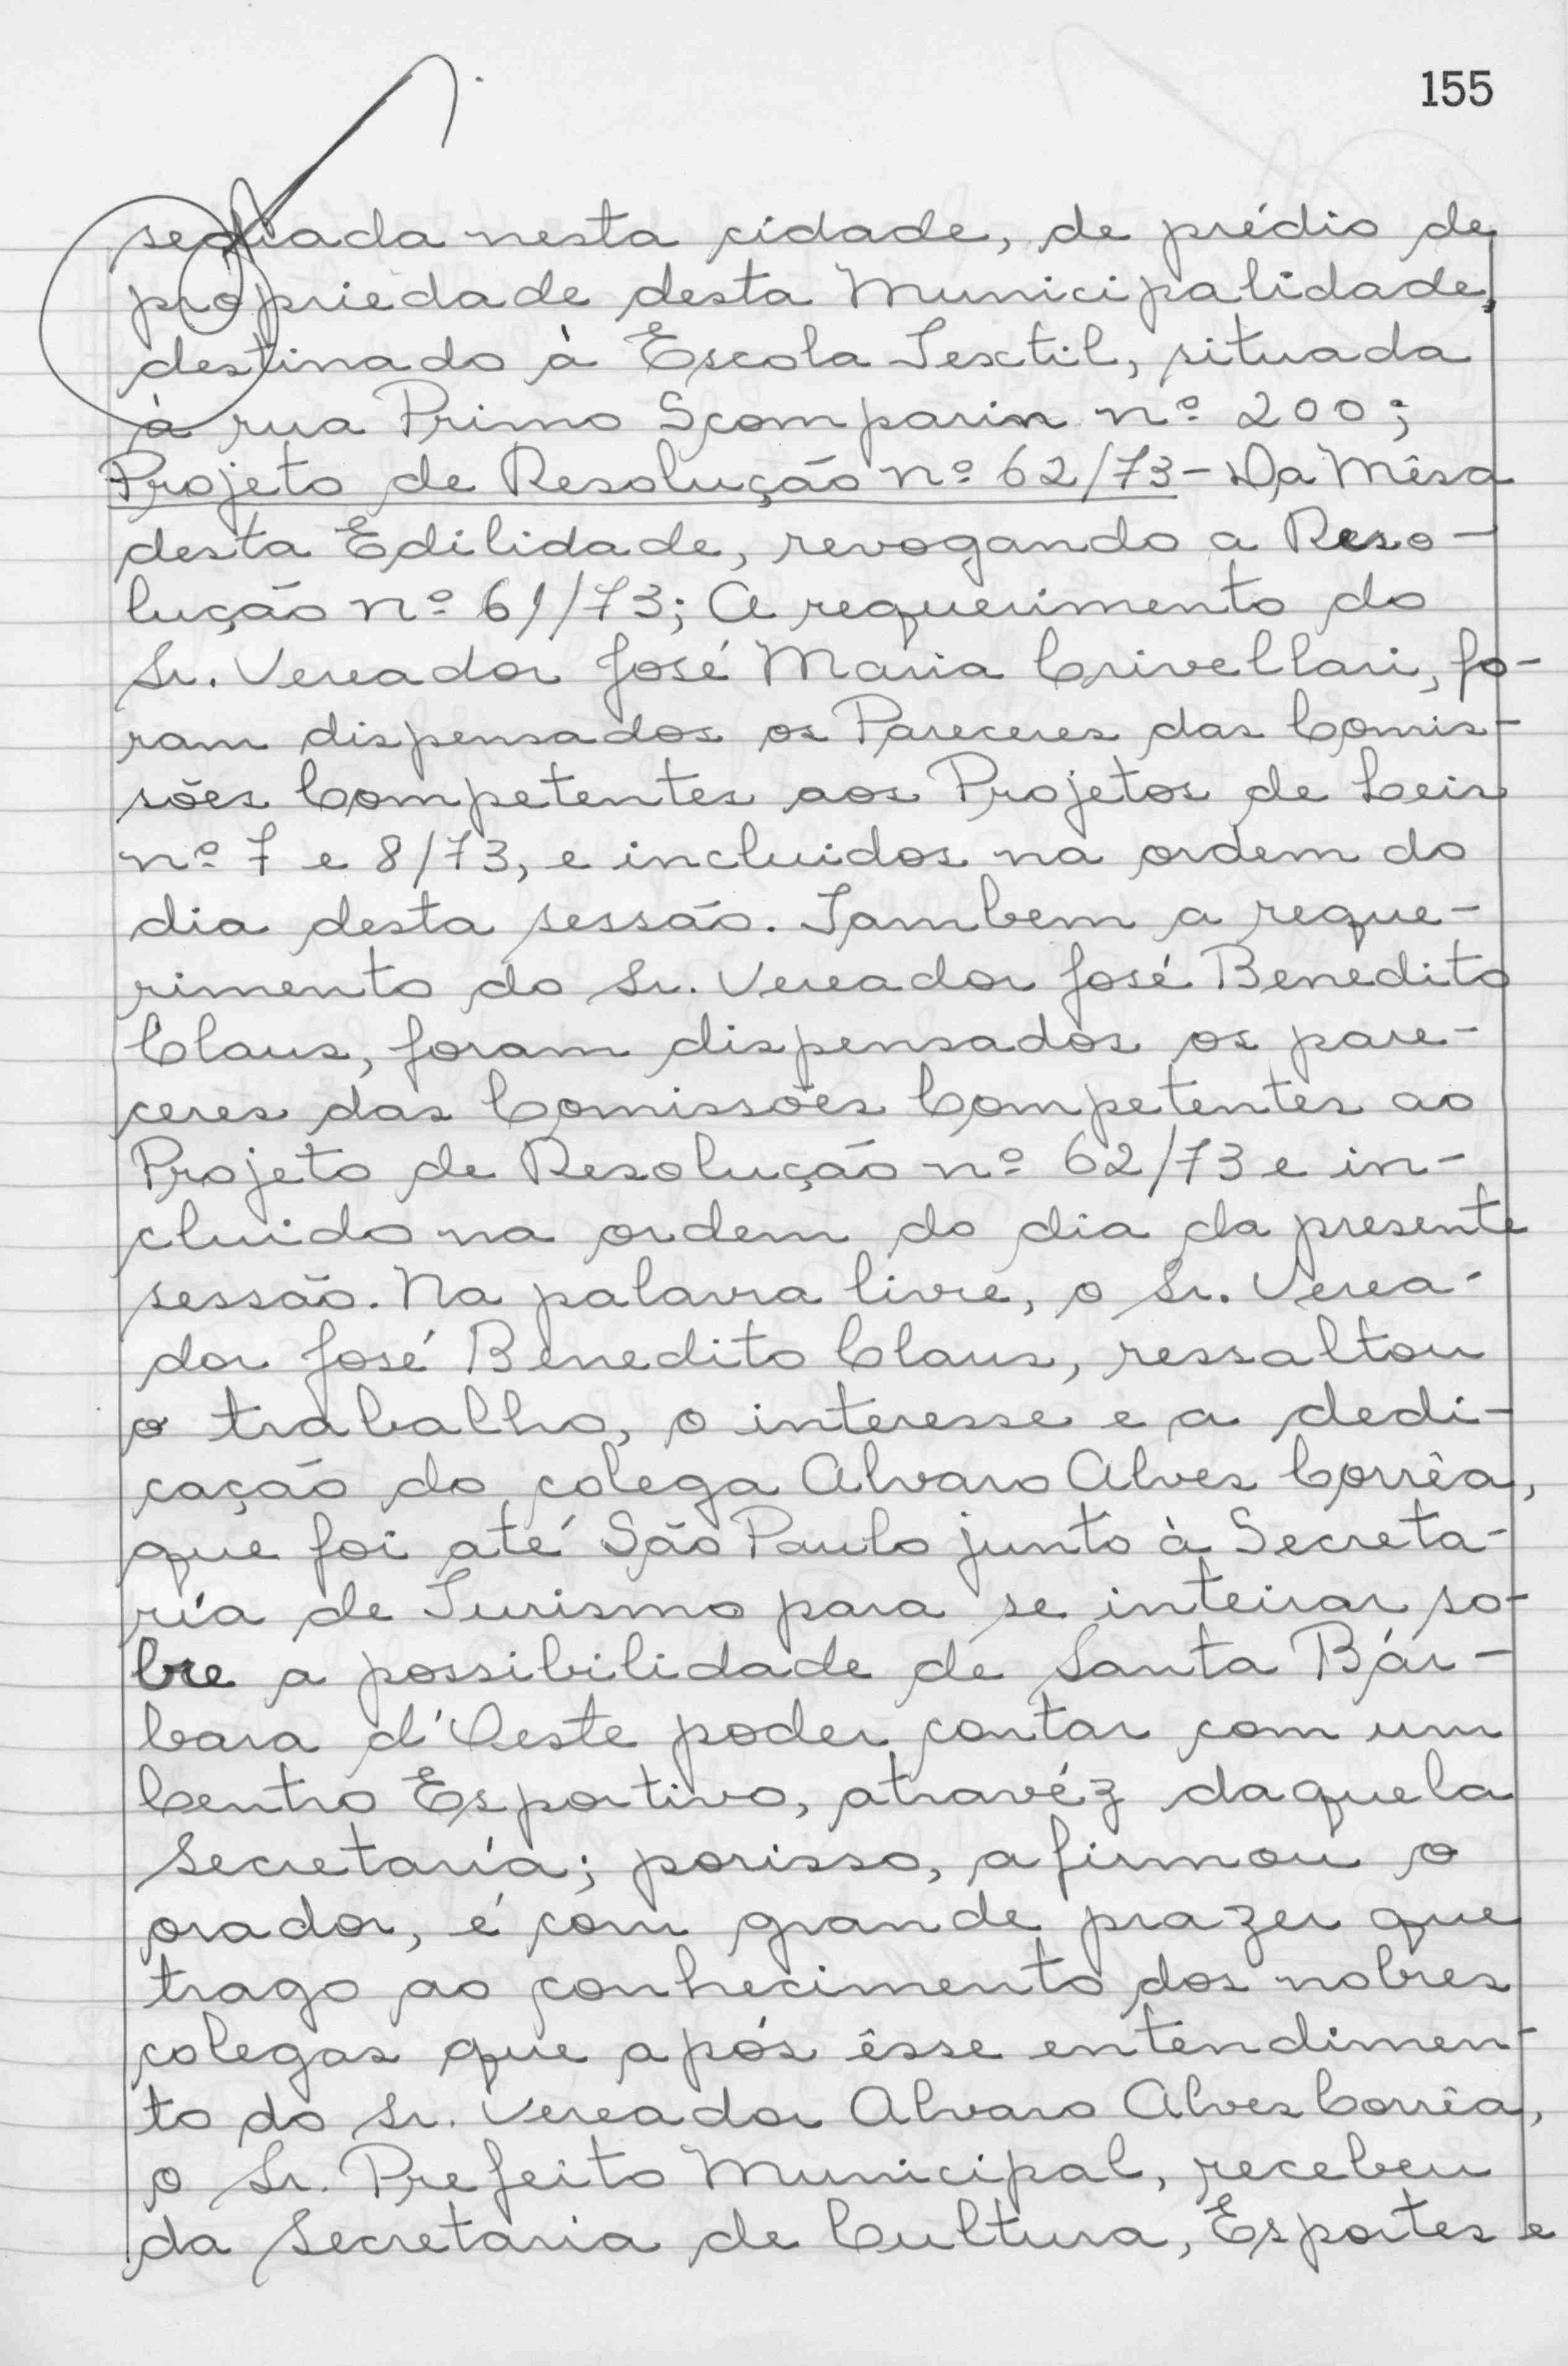 155
sediada nesta cidade, de prédio de
propriedade desta Municipalidade,
destinado à Escola Textil, situada
à rua Primo Scomparin nº 200;
Projeto de Resolução nº 62/73 - Da Mêsa
desta Edilidade, revogando a Reso-
lução nº 61/73; A requerimento do
Sr. Vereador José Maria Crivellari, fo-
ram dispensados os Pareceres das Comis-
sões Competentes aos Projetos de Leis
nº 7 e 8/73, e incluidos na ordem do
dia desta sessão. Tambem a reque-
rimento do Sr. Vereador José Benedito
Claus, foram dispensados os pare-
ceres das Comissões Competentes ao
Projeto de Resolução nº 62/73 e in-
cluido na ordem do dia da presente
sessão. Na palavra livre, o Sr. Verea-
dor José Benedito Claus, ressaltou
o trabalho, o interesse e a dedi-
cação do colega Alvaro Alves Corrêa,
que foi até São Paulo junto à Secreta-
ría de Turismo para se inteirar so-
bre a possibilidade de Santa Bár-
bara d'Oeste poder contar com um
Centro Esportivo, atravéz daquela
Secretaría; porisso, afirmou o
orador, é com grande prazer que
trago ao conhecimento dos nobres
colegas que após êsse entendimen-
to do Sr. Vereador Alvaro Alves Corrêa,
o Sr. Prefeito Municipal, recebeu
da Secretaria de Cultura, Esportes e